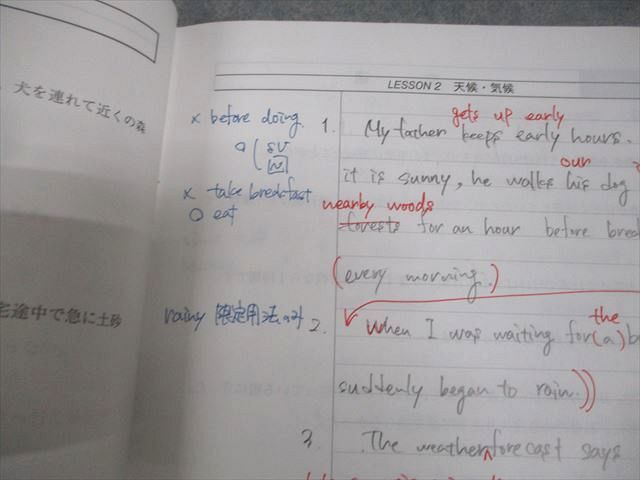 犬を連れて近くの森
宅途中で急に土砂
LESSON 2 天候・気候
× before doing.
○ SV
N
× take breakfast
○ eat
rainy 限定用法のみ
gets up early
1. My father keeps early hours.
our
it is sunny, he walks his dog
nearby woods
forests for an hour before brea
(every morning.)
the
2. When I was waiting for (a) b
suddenly began to rain.))
3. The weather forecast says